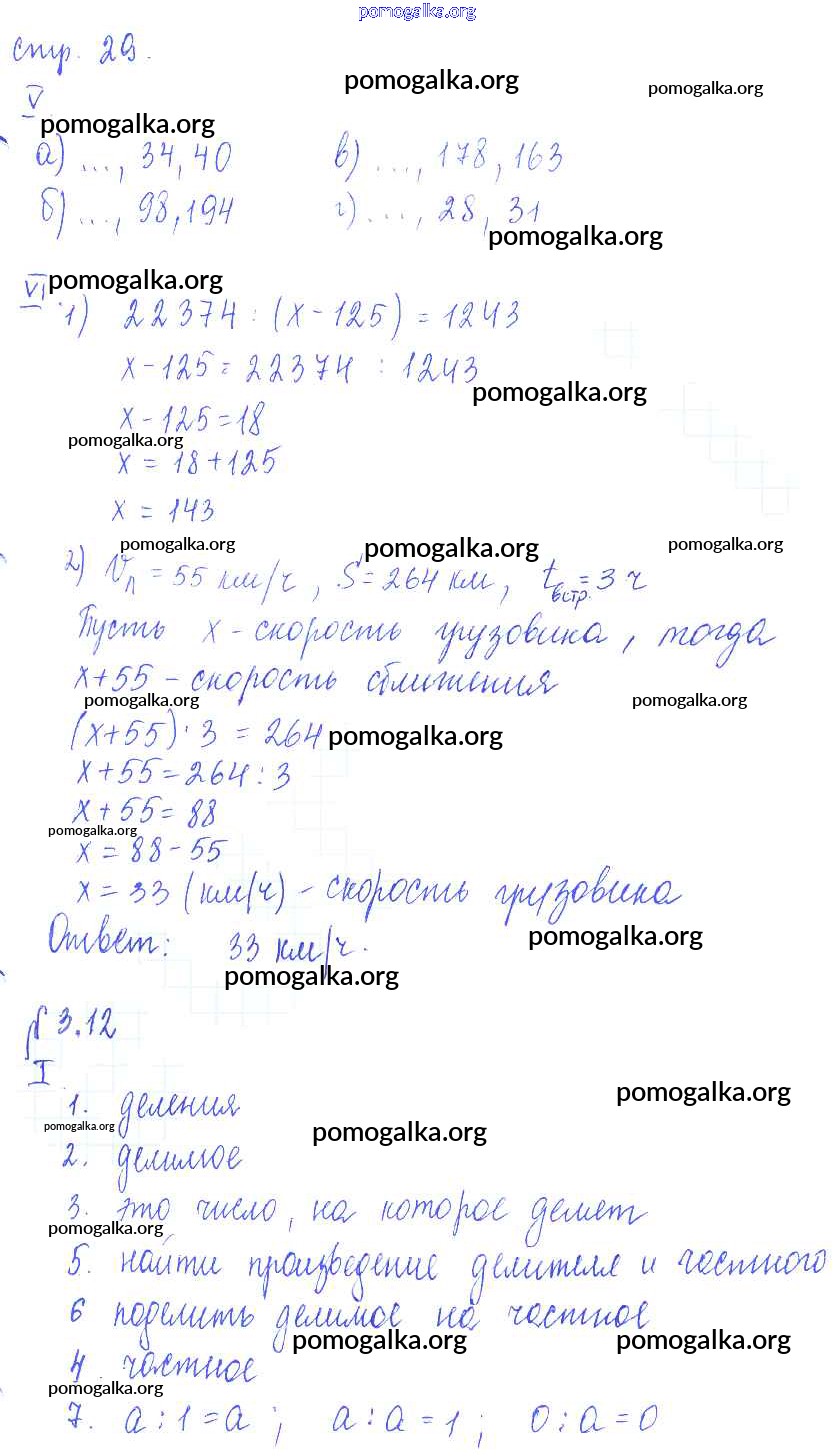 pomogalka.org
стр. 29.
pomogalka.org pomogalka.org
V
pomogalka.org
а) ..., 34, 40 в) ..., 178, 163
б) ..., 98, 194 г) ..., 28, 31
pomogalka.org
VI pomogalka.org
1) 22374 : (x - 125) = 1243
x - 125 = 22374 : 1243
pomogalka.org
x - 125 = 18
pomogalka.org
x = 18 + 125
x = 143
pomogalka.org pomogalka.org pomogalka.org
2) Vл = 55 км/ч, S = 264 км, tвстр. = 3 ч
Пусть x - скорость грузовика, тогда
x + 55 - скорость сближения
pomogalka.org pomogalka.org
(x + 55) · 3 = 264
pomogalka.org
x + 55 = 264 : 3
x + 55 = 88
pomogalka.org
x = 88 - 55
x = 33 (км/ч) - скорость грузовика
Ответ: 33 км/ч.
pomogalka.org
pomogalka.org
№ 3.12
I
pomogalka.org
1. деления
pomogalka.org pomogalka.org
2. делимое
3. это число, на которое делят
pomogalka.org
5. найти произведение делителя и частного
6 поделить делимое на частное
pomogalka.org pomogalka.org
4. частное
pomogalka.org
7. a : 1 = a ; a : a = 1 ; 0 : a = 0